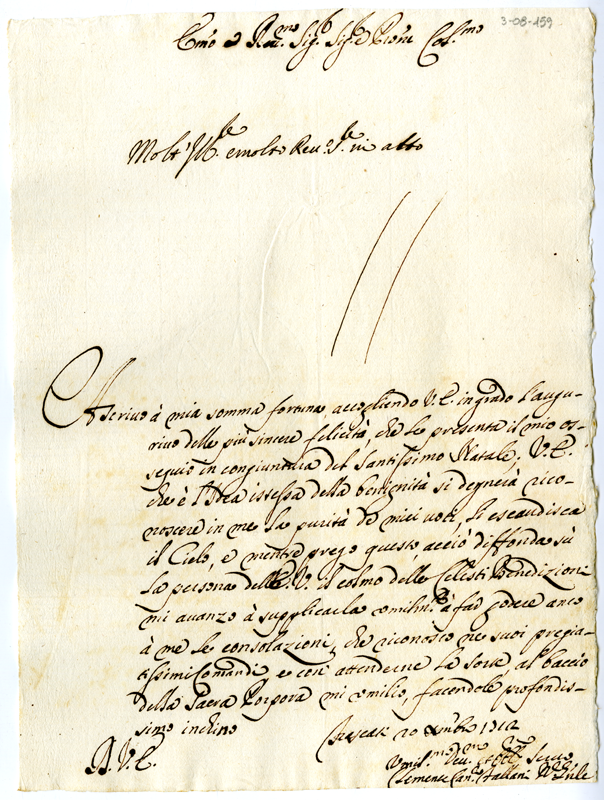 3-08-459
Emo e Reu.mo Sig.r Sig.r e Prône Col.mo
Molt' Ill.re e molto Reu. S.re in atto
Ascriuo à mia somma fortuna, accogliendo V.E. in grado l'augu-
riuo delle più sincere felicità, che le presenta il mio os-
sequio in congiuntura del Santissimo Natale; V.E.
che è l'Idea istessa della benignità si degnerà rico-
noscere in me la purità de miei uoti, li esaudisca
il Cielo, e mentre prego questo acciò diffonda sù
la persona dell'E.V. il colmo delle Celesti Benedizioni
mi auanzo à supplicarla umilm.te à far godere anco
à me le consolazioni, che riconosco ne suoi pregia-
tissimi Comandi, e con attenderne la sorte, al baccio
della Sacra Porpora mi umilio, facendole profondis-
simo inchino
Frascati 20 Xmbre 1712
D.V.E.
Umil.mo Deu.mo Seruo
Clemente Can.co